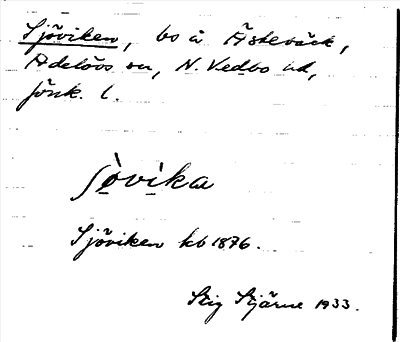 Sjöviken, bo å Åstebäck,
Adelövs sn, N. Vedbo hd,
Jönk. l.
ʃòvìka
Sjöviken kb 1876.
Stig Stjärne 1933.